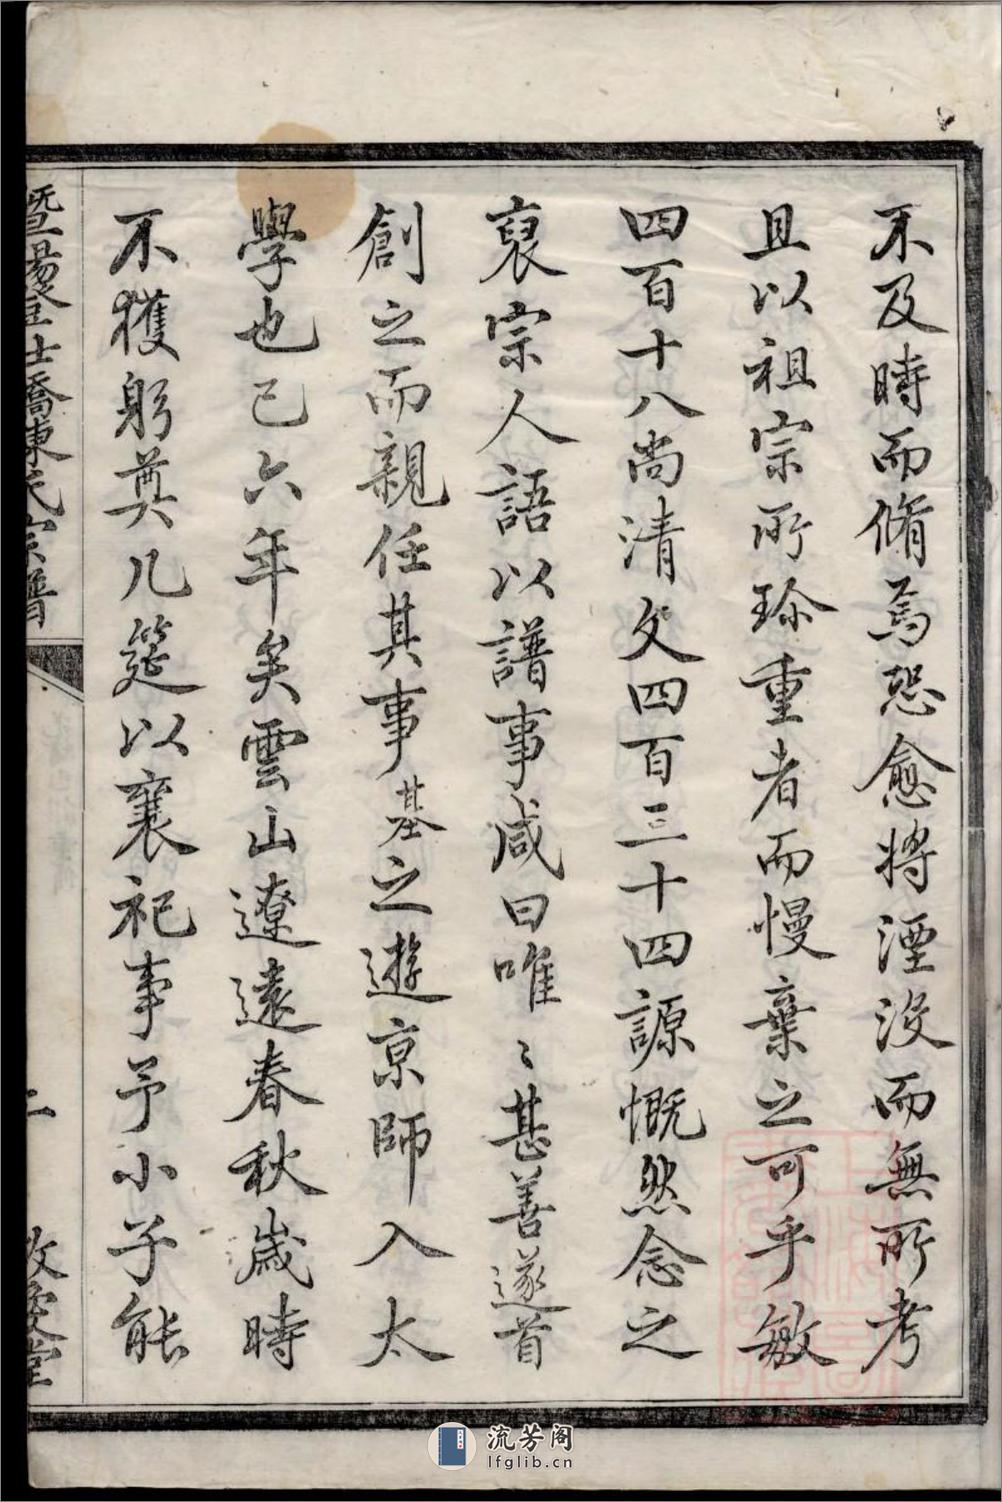 不及時而脩焉恐愈將湮沒而無所考
且以祖宗所珍重者而慢棄之可乎敏
四百十八尚清文四百三十四謜慨然念之
裒宗人語以譜事咸曰唯〻甚善遂首
創之而親任其事基之遊京師入太
學也已六年矣雲山遼遠春秋歲時
不獲躬奠几筵以襄祀事予小子能
橋東氏宗譜
二
堂
流芳阁
lfglib.cn